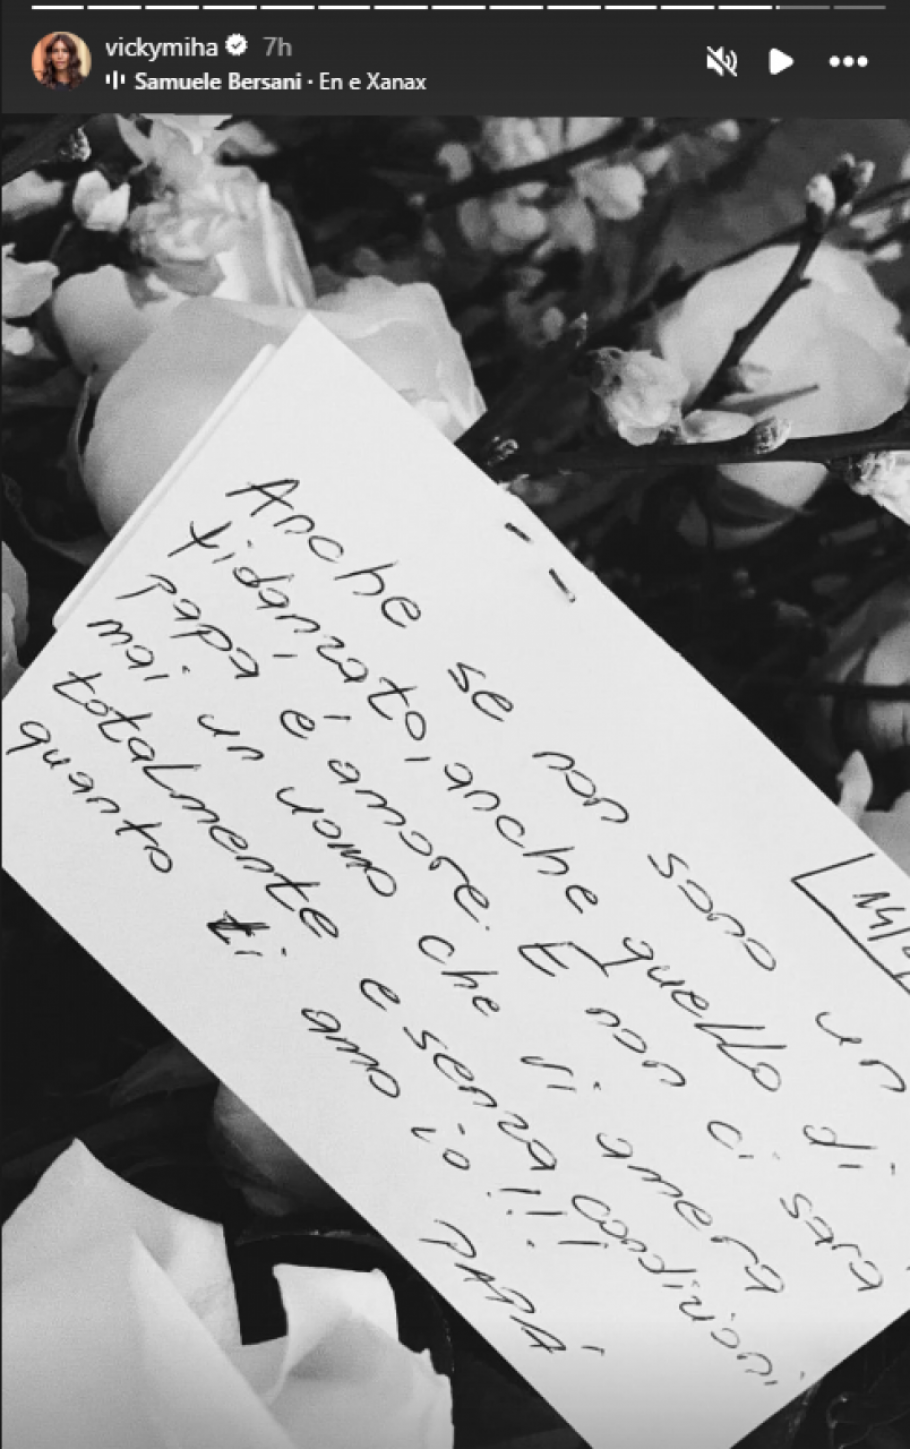 vickymiha 7h
Samuele Bersani · En e Xanax
14/
Anche se non sono un
fidanzato, anche quello di
papà è amore. E non ci sarà
mai un uomo che vi amerà
totalmente e senza condizioni
quanto ti amo io!!
PAPÀ